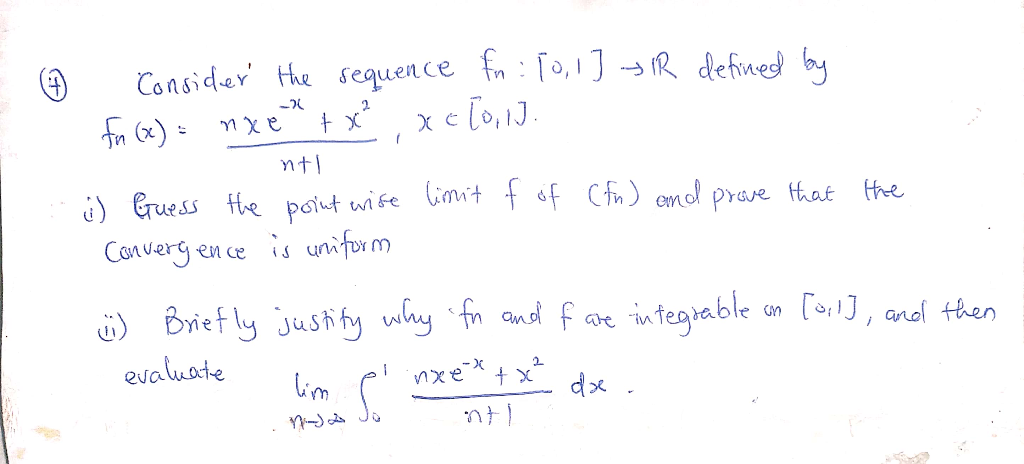 ④ Consider the sequence fn : [0,1] → IR defined by
fn (x) = (nxe^-x + x^2) / (n+1) , x ∈ [0,1].
i) Guess the point wise limit f of (fn) and prove that the
Convergence is uniform
ii) Briefly justify why fn and f are integrable on [0,1], and then
evaluate lim n→∞ ∫₀¹ (nxe^-x + x^2) / (n+1) dx .